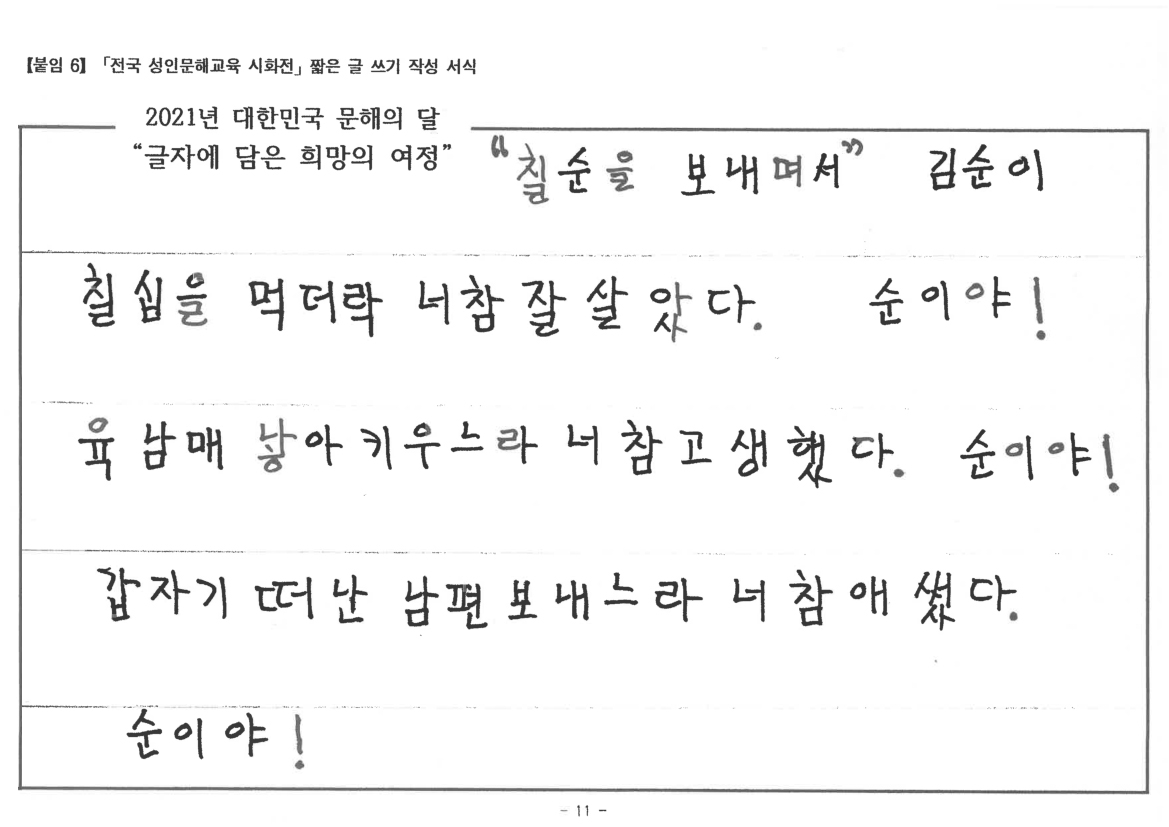 【붙임 6】 「전국 성인문해교육 시화전」 짧은 글 쓰기 작성 서식
2021년 대한민국 문해의 달
“글자에 담은 희망의 여정”
“칠순을 보내며서” 김순이
칠십을 먹더락 너참 잘 살았다. 순이야!
육남매 낳아키우느라 너참고생했다. 순이야!
갑자기 떠난 남편보내느라 너참애썼다.
순이야!
- 11 -